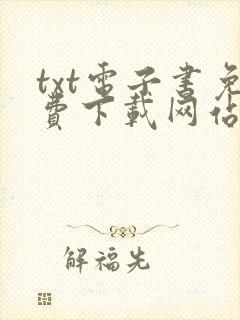 txt電子書免
費下載网站
解福先